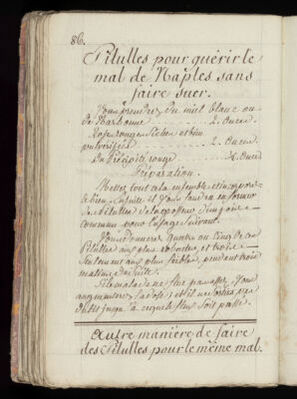 86.
Pilulles pour guérir le
mal de Naples sans
faire suer.
Vous prendrez du miel blanc ou
de Narbonne 2. Onces
Roses rouges seches et bien
pulverisées 2. Onces
du Précipité rouge ½ Once
Préparation.
Mettez tout cela ensemble et incorporez
le bien, ensuite il Vous faudra en former
des Pilulles de la grosseur d'un pois
commun pour l'usage suivant.
Vous donnerez quatre ou Cinq de ces
Pilulles aux plus robustes, et trois
seulement aux plus foibles, pendant trois
matins de suite.
Si le malade ne flue pas assez, Vous
augmenterez la dose
jusqu'à ce que le flux soit passé.
Autre maniere de faire
des Pilulles pour le même mal.